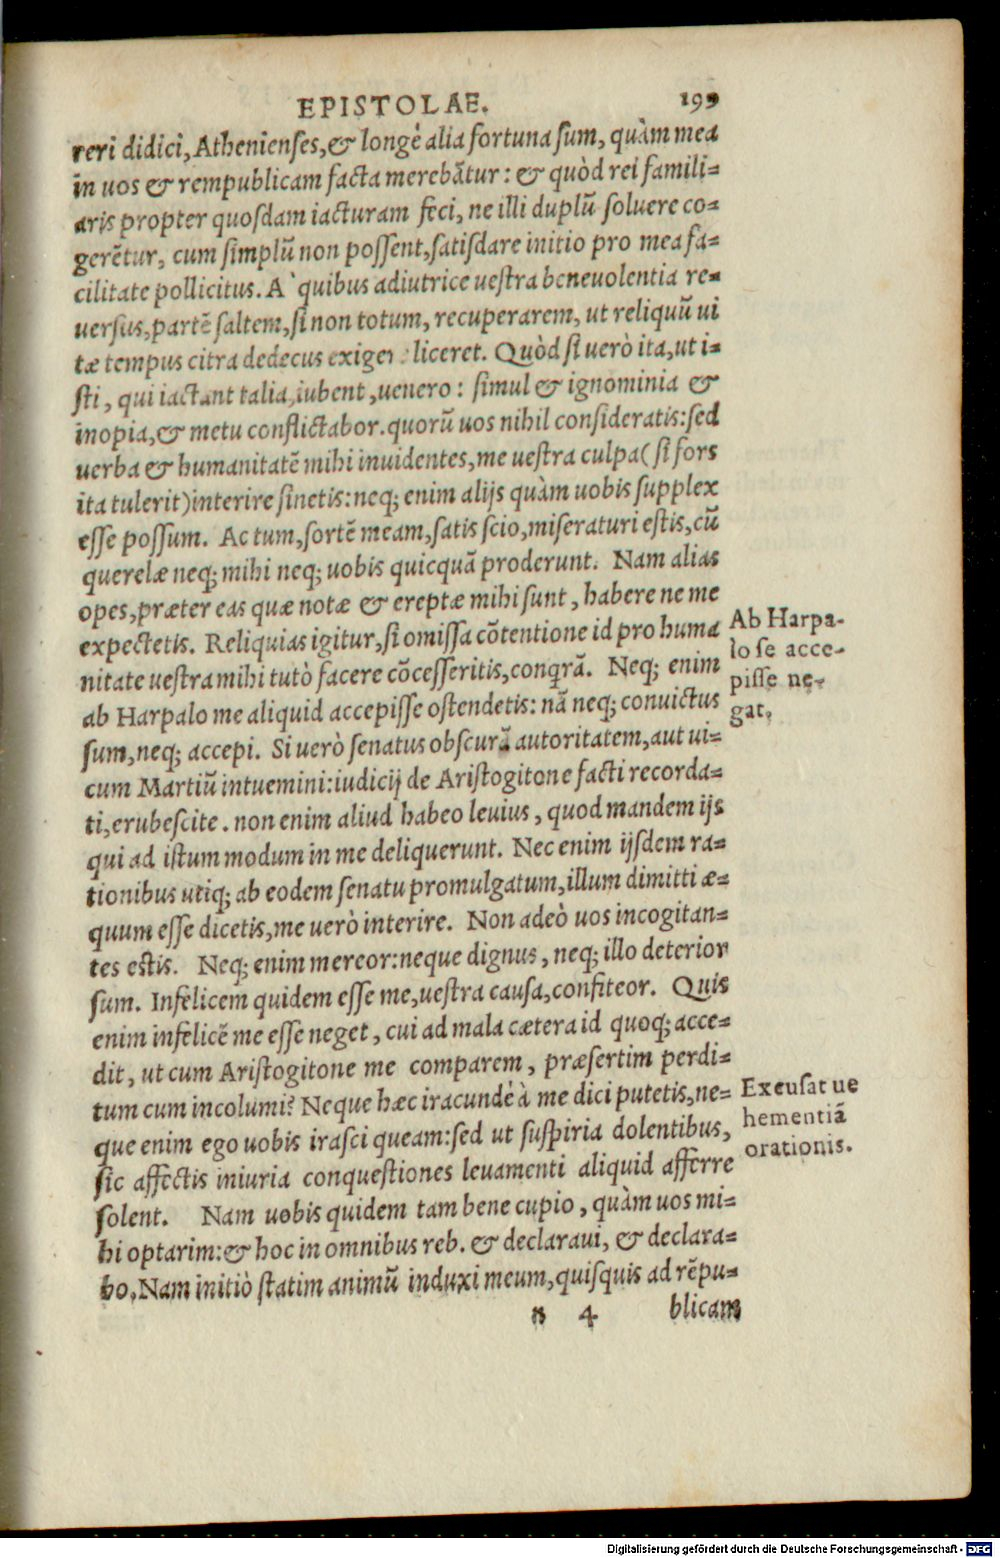 EPISTOLAE. 199
reri didici, Athenienses, & longè alia fortuna sum, quàm mea
in uos & rempublicam facta merebātur: & quòd rei famili=
aris propter quosdam iacturam feci, ne illi duplū soluere co=
gerētur, cum simplū non possent, satisdare initio pro mea fa=
cilitate pollicitus. A` quibus adiutrice uestra beneuolentia re=
uersus, partē saltem, si non totum, recuperarem, ut reliquū ui
tæ tempus citra dedecus exiger liceret. Quòd si uerò ita, ut i=
sti, qui iactant talia, iubent, uenero: simul & ignominia &
inopia, & metu conflictabor. quorū uos nihil consideratis: sed
uerba & humanitatē mihi inuidentes, me uestra culpa (si fors
ita tulerit) interire sinetis: neq; enim alijs quàm uobis supplex
esse possum. Ac tum, sortē meam, satis scio, miseraturi estis, cū
querelæ neq; mihi neq; uobis quicquā proderunt. Nam alias
opes, præter eas quæ notæ & ereptæ mihi sunt, habere ne me
expectetis. Reliquias igitur, si omissa cōtentione id pro huma
nitate uestra mihi tutò facere cōcesseritis, conqrā. Neq; enim
ab Harpalo me aliquid accepisse ostendetis: nā neq; conuictus
sum, neq; accepi. Si uerò senatus obscurā autoritatem, aut ui=
cum Martiū intuemini: iudicij de Aristogitone facti recorda=
ti, erubescite. non enim aliud habeo leuius, quod mandem ijs
qui ad istum modum in me deliquerunt. Nec enim ijsdem ra=
tionibus utiq; ab eodem senatu promulgatum, illum dimitti æ=
quum esse dicetis, me uerò interire. Non adeò uos incogitan=
tes estis. Neq; enim mereor: neque dignus, neq; illo deterior
sum. Infelicem quidem esse me, uestra causa, confiteor. Quis
enim infelicē me esse neget, cui ad mala cætera id quoq; acce=
dit, ut cum Aristogitone me comparem, præsertim perdi=
tum cum incolumi? Neque hæc iracundè à me dici putetis, ne=
que enim ego uobis irasci queam: sed ut suspiria dolentibus,
sic affectis iniuria conquestiones leuamenti aliquid afferre
solent. Nam uobis quidem tam bene cupio, quàm uos mi=
hi optarim: & hoc in omnibus reb. & declaraui, & declara=
bo. Nam initiò statim animū induxi meum, quisquis ad rēpu=
n 4 blicam
Ab Harpa-
lo se acce-
pisse ne-
gat.
Excusat ue
hementiā
orationis.
Digitalisierung gefördert durch die Deutsche Forschungsgemeinschaft - DFG